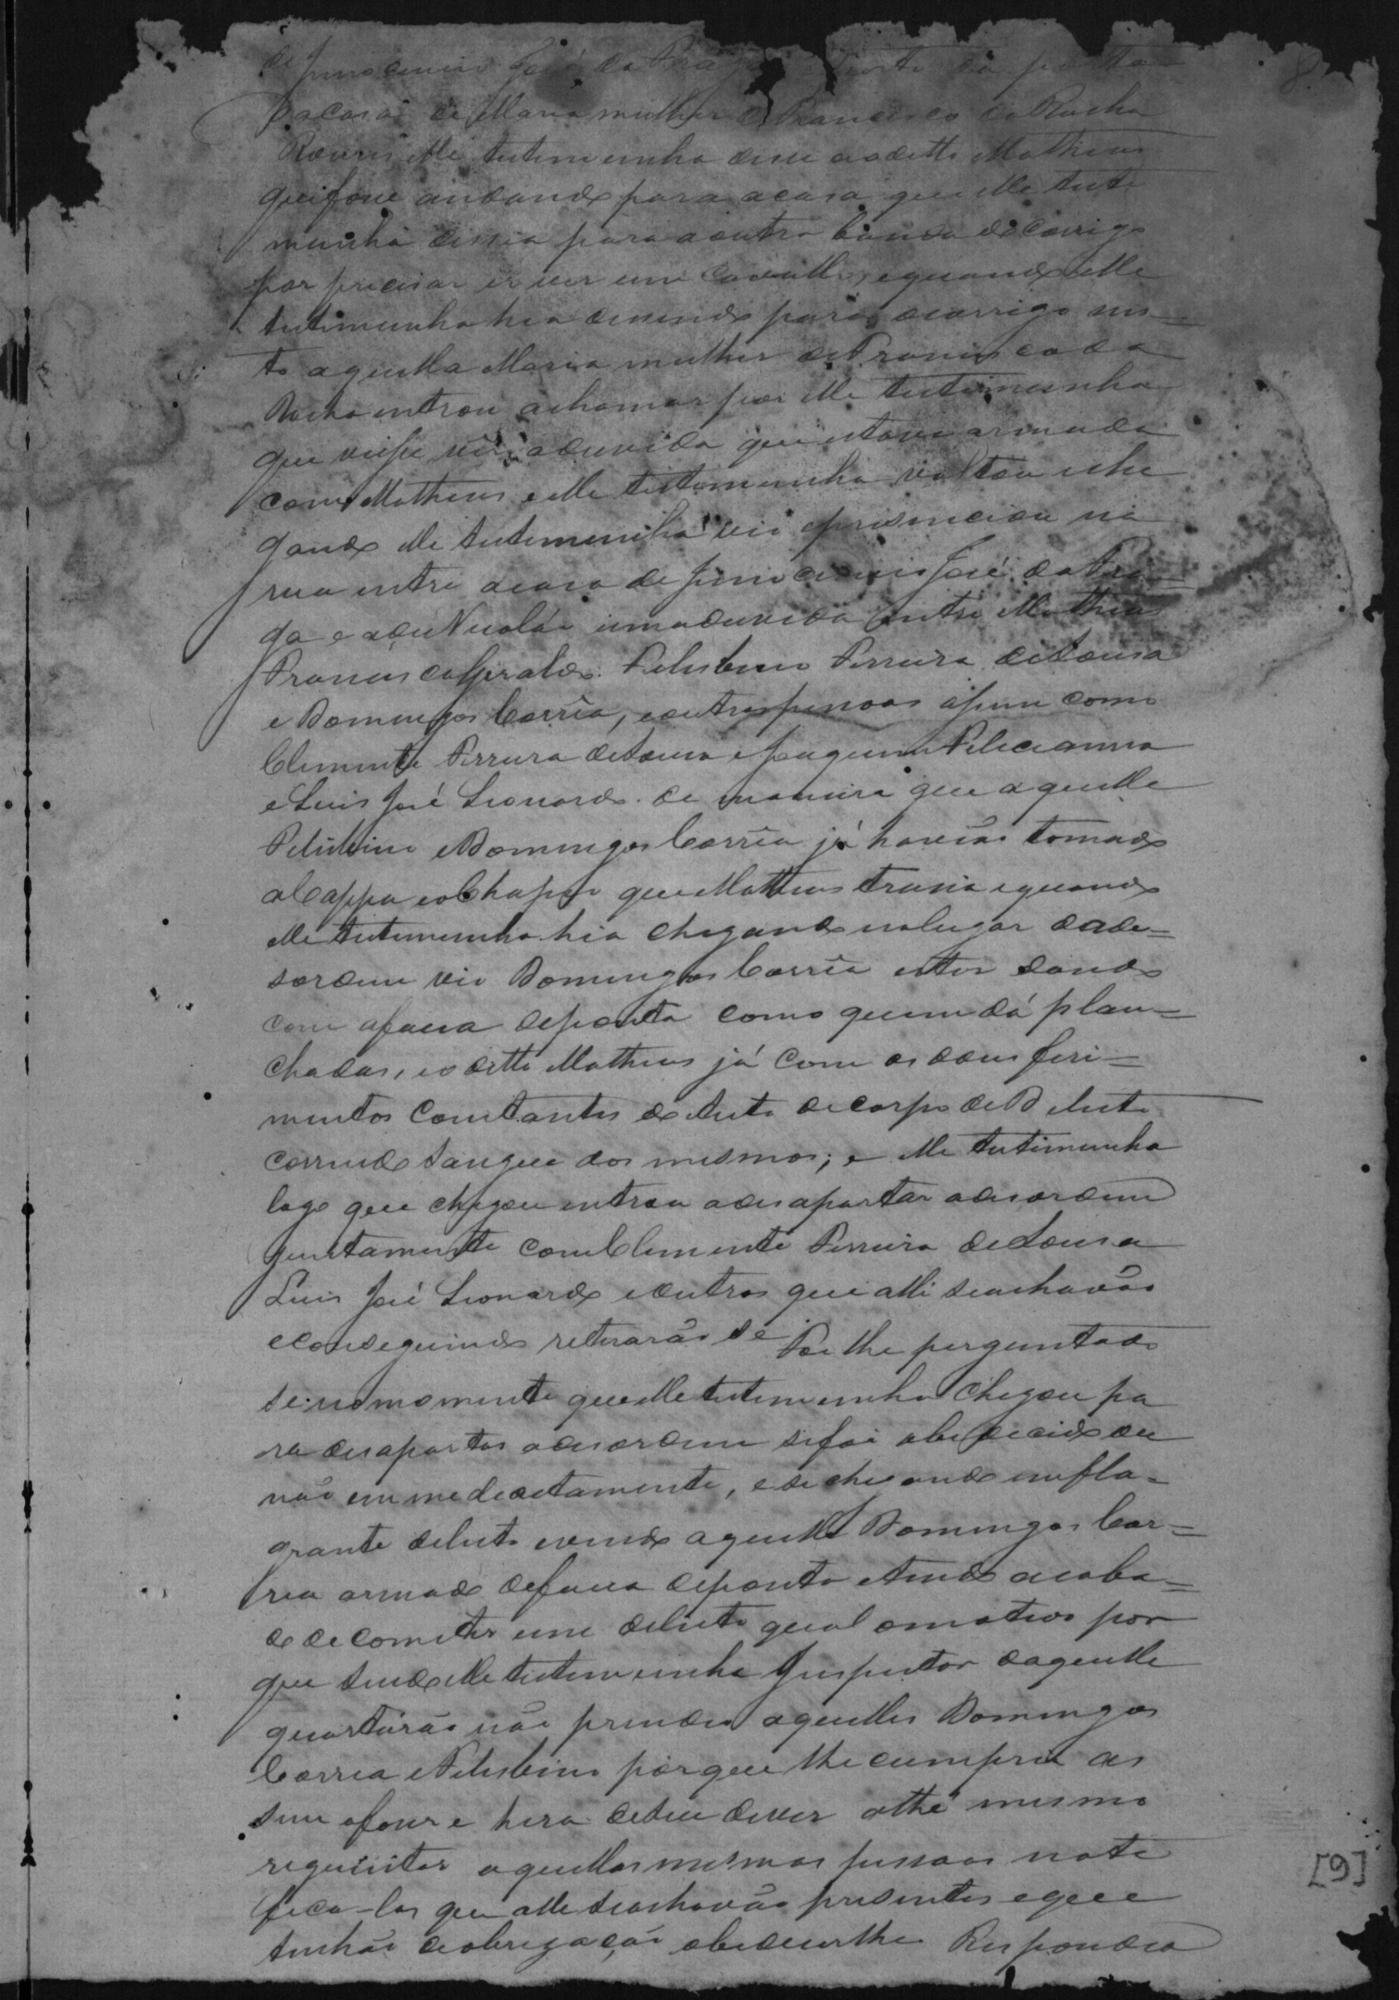 de Innocencio José da Praga
da casa de Maria mulher de Francisco da Rocha
elle testemunha disse ao ditto Matheus
que fosse andando para a casa que elle teste
munha descia para a outra banda do corrigo
por precisar ir ver um cavallo, e quando elle
testemunha hia descendo para o corrigo nes-
to aquella Maria mulher de Francisco da
Rocha entrou a chamar por elle testemunha
que viese ver a duvida que estava armada
com Matheus e elle testemunha voltou e che
gando elle testemunha vio e prisenciou na
rua entre a casa de Innocencio José da Pra-
ga e a de Nicoláo uma duvida entre Matheus
Francisco Geraldo. Felisbino Ferreira de Sousa
e Domingos Corrêa, e outras pessoas assim como
Clemente Ferreira de Sousa e Joaquim Feliciano
e Luis José Leonardo de maneira que aquelle
Felisbino e Domingos Corrêa já havião tomado
a Cappa e o Chapeo que Matheus trasia e quando
elle testemunha hia chegando no lugar da de-
sordem vio Domingos Corrêa estar dando
com a faca de ponta como quem dá plan-
chadas, e o ditto Matheus já com os dous feri-
mentos constantes do Auto de corpo de Delicto
correndo sangue dos mesmos; e elle testemunha
logo que chegou entrou a desapartar a desordem
juntamente com Clemente Ferreira de Sousa
Luis José Leonardo e outros que alli se achavão
e conseguindo retirarão se. Foi lhe perguntado
se no momento que elle testemunha chegou pa
ra desapartar a desordem se foi obedecido ou
não immediatamente, e se chegando em fla-
grante delicto e vendo aquelle Domingos Cor-
rea armado de faca de ponta e tendo acaba-
do de cometer um delicto qual o motivo por
que sendo elle testemunha Inspector daquelle
quarteirão não prendeo aquelles Domingos
Correa e Felisbino porque lhe cumpria as
sim o faser e hera de seu dever athé mesmo
requisitar aquellas mesmas pessoas note
fica-los que alli se achavão presentes e que
tinhão de obrigação obedecerlhe. Respondeo
[9]